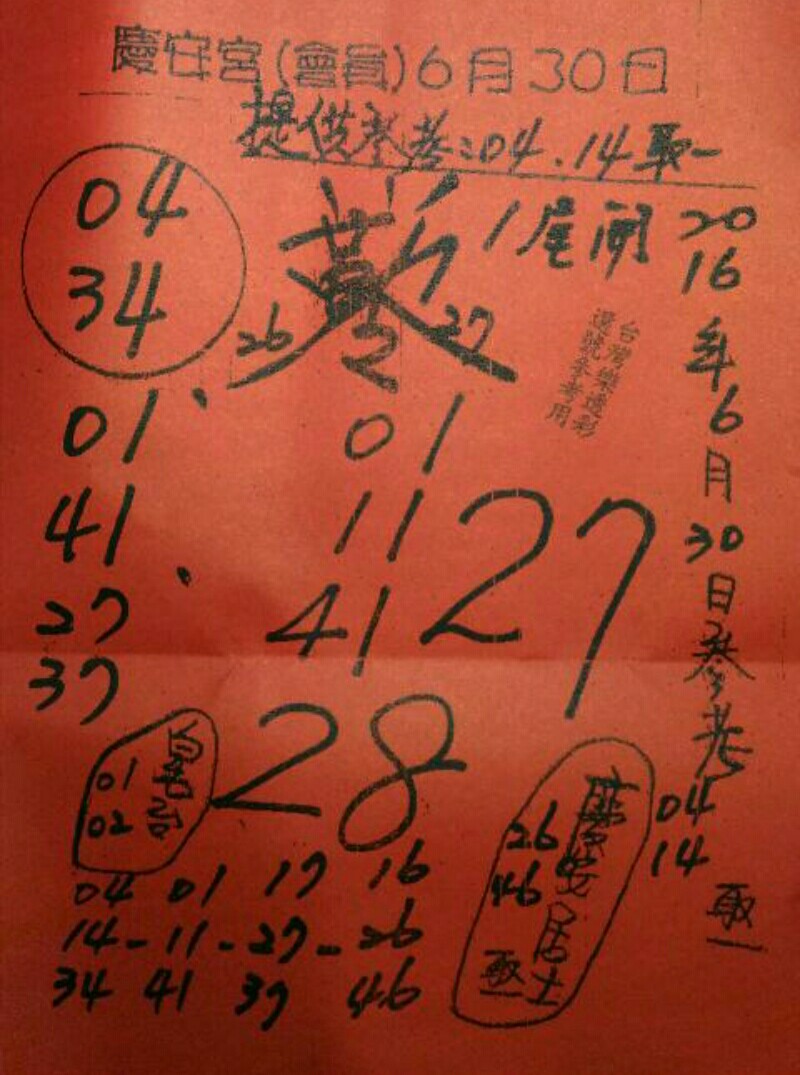 慶安宮(會員)6月30日
提供參考:04.14取一
04
34
1尾開
26
27
01
41
27
37
01
11
41
27
28
2016年6月30日參考
04
14
取一
台灣樂透彩
選號參考用
01
02
26
46
居士
取一
04 01 17 16
14-11-27-26
34 41 39 46